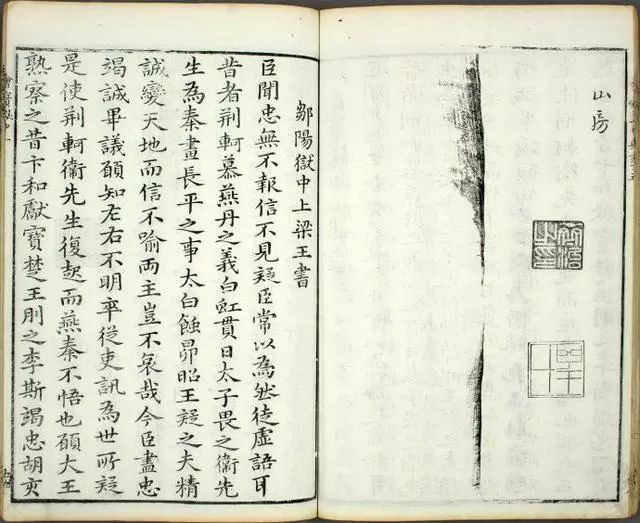 山房
鄒陽獄中上梁王書
臣聞忠無不報信不見疑臣常以為然徒虛語耳
昔者荆軻慕燕丹之義白虹貫日太子畏之衛先
生為秦畫長平之事太白蝕昴昭王疑之夫精
誠變天地而信不喻兩主豈不哀哉今臣盡忠
竭誠畢議願知左右不明卒從吏訊為世所疑
是使荆軻衛先生復起而燕秦不悟也願大王
熟察之昔卞和獻寶楚王刖之李斯竭忠胡亥